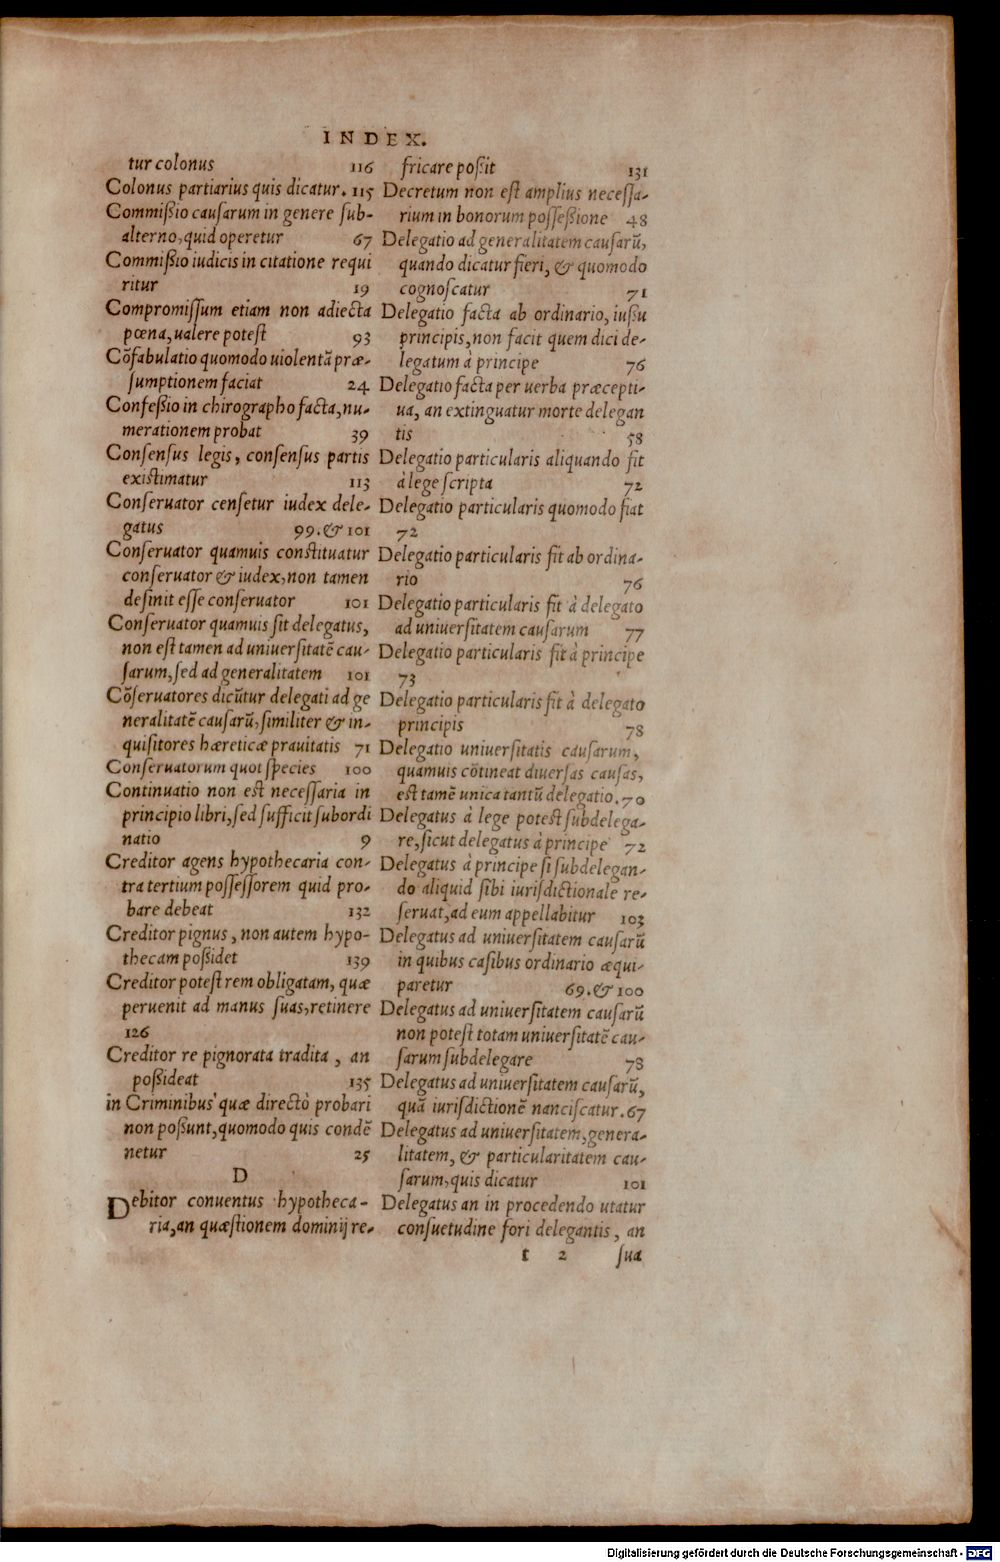 INDEX.
tur colonus 116
Colonus partiarius quis dicatur. 115
Commißio cauſarum in genere ſub-
alterno, quid operetur 67
Commißio iudicis in citatione requi
ritur 19
Compromiſſum etiam non adiecta
pœna, ualere poteſt 93
Cõfabulatio quomodo uiolentã præ-
ſumptionem faciat 24
Confeßio in chirographo facta, nu-
merationem probat 39
Conſenſus legis, conſenſus partis
existimatur 113
Conſeruator cenſetur iudex dele-
gatus 99. & 101
Conſeruator quamuis constituatur
conſeruator & iudex, non tamen
deſinit eſſe conſeruator 101
Conſeruator quamuis ſit delegatus,
non eſt tamen ad uniuerſitatẽ cau-
ſarum, ſed ad generalitatem 101
Cõſeruatores dicũtur delegati ad ge
neralitatẽ cauſarũ, ſimiliter & in-
quiſitores hæreticæ prauitatis 71
Conſeruatorum quot ſpecies 100
Continuatio non eſt neceſſaria in
principio libri, ſed ſufficit ſubordi
natio 9
Creditor agens hypothecaria con-
tra tertium poſſeſſorem quid pro-
bare debeat 132
Creditor pignus, non autem hypo-
thecam poßidet 139
Creditor poteſt rem obligatam, quæ
peruenit ad manus ſuas, retinere
126
Creditor re pignorata tradita, an
poßideat 135
in Criminibus quæ directò probari
non poßunt, quomodo quis condẽ
netur 25
D
Debitor conuentus hypotheca-
ria, an quæſtionem dominij re-
fricare poßit 131
Decretum non eſt amplius neceſſa-
rium in bonorum poſſeßione 48
Delegatio ad generalitatem cauſarũ,
quando dicatur fieri, & quomodo
cognoſcatur 71
Delegatio facta ab ordinario, iußu
principis, non facit quem dici de-
legatum à principe 76
Delegatio facta per uerba præcepti-
ua, an extinguatur morte delegan
tis 58
Delegatio particularis aliquando fit
à lege ſcripta 72
Delegatio particularis quomodo fiat
72
Delegatio particularis fit ab ordina-
rio 76
Delegatio particularis fit à delegato
ad uniuerſitatem cauſarum 77
Delegatio particularis fit à principe
73
Delegatio particularis fit à delegato
principis 78
Delegatio uniuerſitatis cauſarum,
quamuis cõtineat diuerſas cauſas,
eſt tamẽ unica tantũ delegatio. 70
Delegatus à lege poteſt ſubdelega-
re, ſicut delegatus à principe 72
Delegatus à principe ſi ſubdelegan-
do aliquid ſibi iuriſdictionale re-
ſeruat, ad eum appellabitur 103
Delegatus ad uniuerſitatem cauſarũ
in quibus caſibus ordinario æqui-
paretur 69. & 100
Delegatus ad uniuerſitatem cauſarũ
non poteſt totam uniuerſitatẽ cau-
ſarum ſubdelegare 78
Delegatus ad uniuerſitatem cauſarũ,
quã iuriſdictionẽ nanciſcatur. 67
Delegatus ad uniuerſitatem, genera-
litatem, & particularitatem cau-
ſarum, quis dicatur 101
Delegatus an in procedendo utatur
conſuetudine fori delegantis, an
t 2 ſua
Digitalisierung gefördert durch die Deutsche Forschungsgemeinschaft - DFG